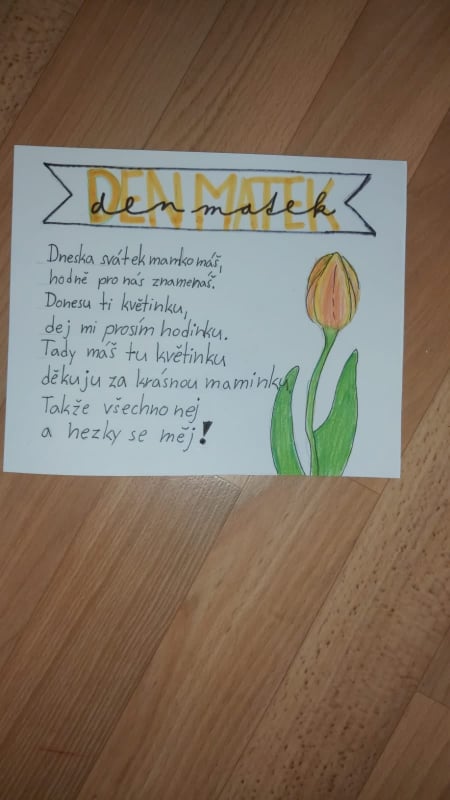 DEN MATEK
den matek
Dneska svátek mamko máš,
hodně pro nás znamenáš.
Donesu ti květinku,
dej mi prosím hodinku.
Tady máš tu květinku
děkuju za krásnou maminku,
Takže všechno nej
a hezky se měj!